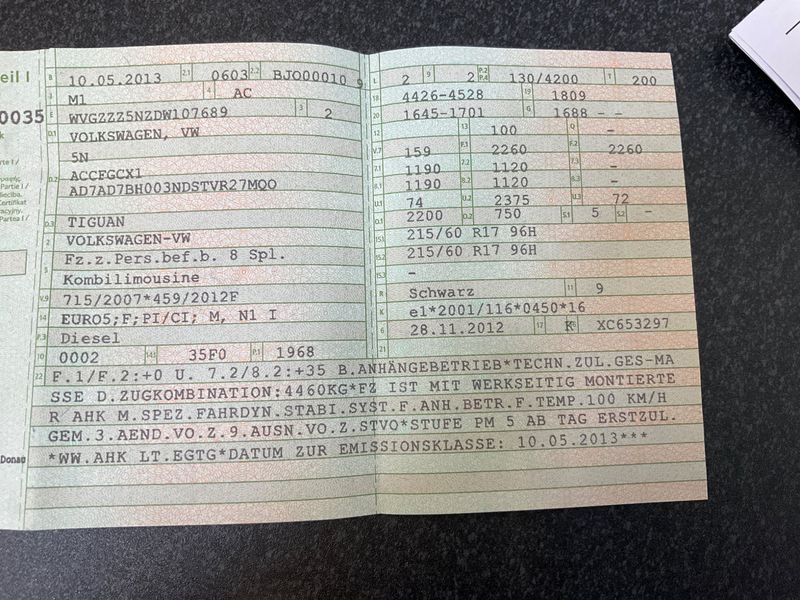 eil I
0035
Donau
B 10.05.2013 2.1 0603 2.2 BJO00010 9
J M1 4 AC
E WVGZZZ5NZDW107689 3 2
D.1 VOLKSWAGEN, VW
5N
D.2 ACCFGCX1
AD7AD7BH003NDSTVR27MQO
D.3 TIGUAN
2 VOLKSWAGEN-VW
5 Fz.z.Pers.bef.b. 8 Spl.
Kombilimousine
V.9 715/2007*459/2012F
14 EURO5;F;PI/CI; M, N1 I
P.3 Diesel
10 0002 14.1 35F0 P.1 1968
L 2 9 2 P.2 P.4 130/4200 T 200
18 4426-4528 19 1809
20 1645-1701 G 1688 - -
12 13 100 Q -
V.7 159 F.1 2260 F.2 2260
7.1 1190 7.2 1120 7.3 -
8.1 1190 8.2 1120 8.3 -
U.1 74 U.2 2375 U.3 72
O.1 2200 O.2 750 S.1 5 S.2 -
15.1 215/60 R17 96H
15.2 215/60 R17 96H
15.3 -
R Schwarz 11 9
K e1*2001/116*0450*16
6 28.11.2012 17 K 16 XC653297
21
22 F.1/F.2:+0 U. 7.2/8.2:+35 B.ANHÄNGEBETRIEB*TECHN.ZUL.GES-MA
SSE D.ZUGKOMBINATION:4460KG*FZ IST MIT WERKSEITIG MONTIERTE
R AHK M.SPEZ.FAHRDYN.STABI.SYST.F.ANH.BETR.F.TEMP.100 KM/H
GEM.3.AEND.VO.Z.9.AUSN.VO.Z.STVO*STUFE PM 5 AB TAG ERSTZUL.
*WW.AHK LT.EGTG*DATUM ZUR EMISSIONSKLASSE: 10.05.2013***